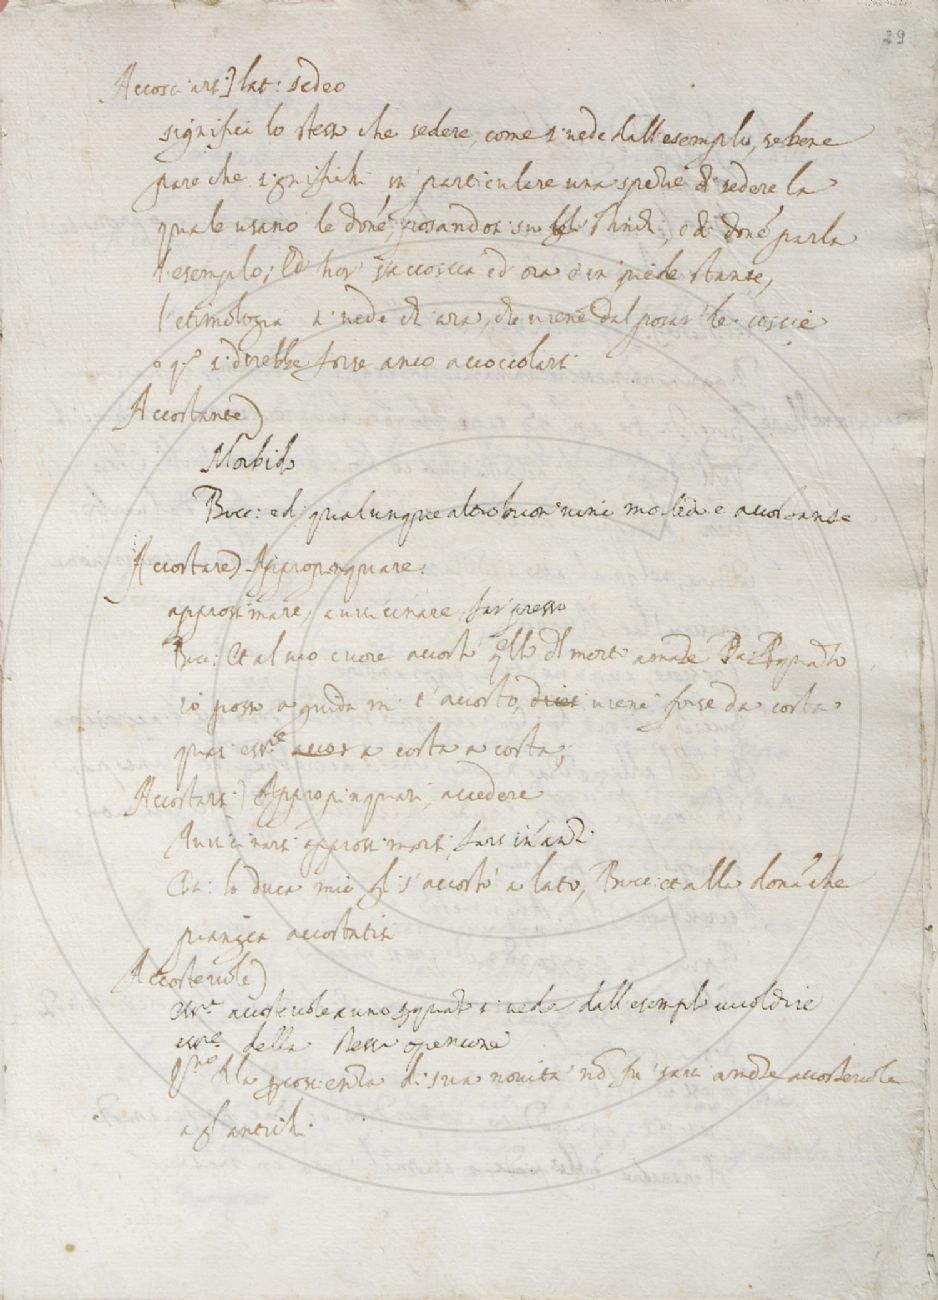 29
Accosciarsi] lat: sedeo
significa lo stesso che sedere, come si vede dall'esemplo, se bene
pare che significhi in particulare una spetie di sedere la
quale usano le donē, posandosi su gli, e di donē parla
l'esemplo; Ed hor s'accoscia ed ora è in piede stante,
l'etimologia si vede chiara, che vienē dal posar le coscie
o q.° si direbbe forse anco accoccolarsi
Accostante)
Morbido
Bocc: ed qualunque altro buon vini morbido e accostante
Accostare) Appropinquare.
approssimare, avvicinare far presso
Bocc: Et al mio cuore accostò
io posso a guida mi t'accosto, vienē forse da costa
quasi ess.re a costa a costa;
Accostarsi) Appropinquari, accedere
Avvicinarsi approssimarsi, farsi inanzi
Da: lo duca mio si s'accostò a lato, Bocc: et alla donā che
piangea accostatisi
Accostevole)
ess.re accostevole a uno si vede dall'esemplo vuol dire
ess.re della stessa openione
della di sua novità nō fu accostevole
a gl'antichi.